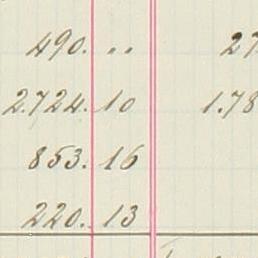 490. ,, 27
2.724. 10 1.78
853. 16
220. 13